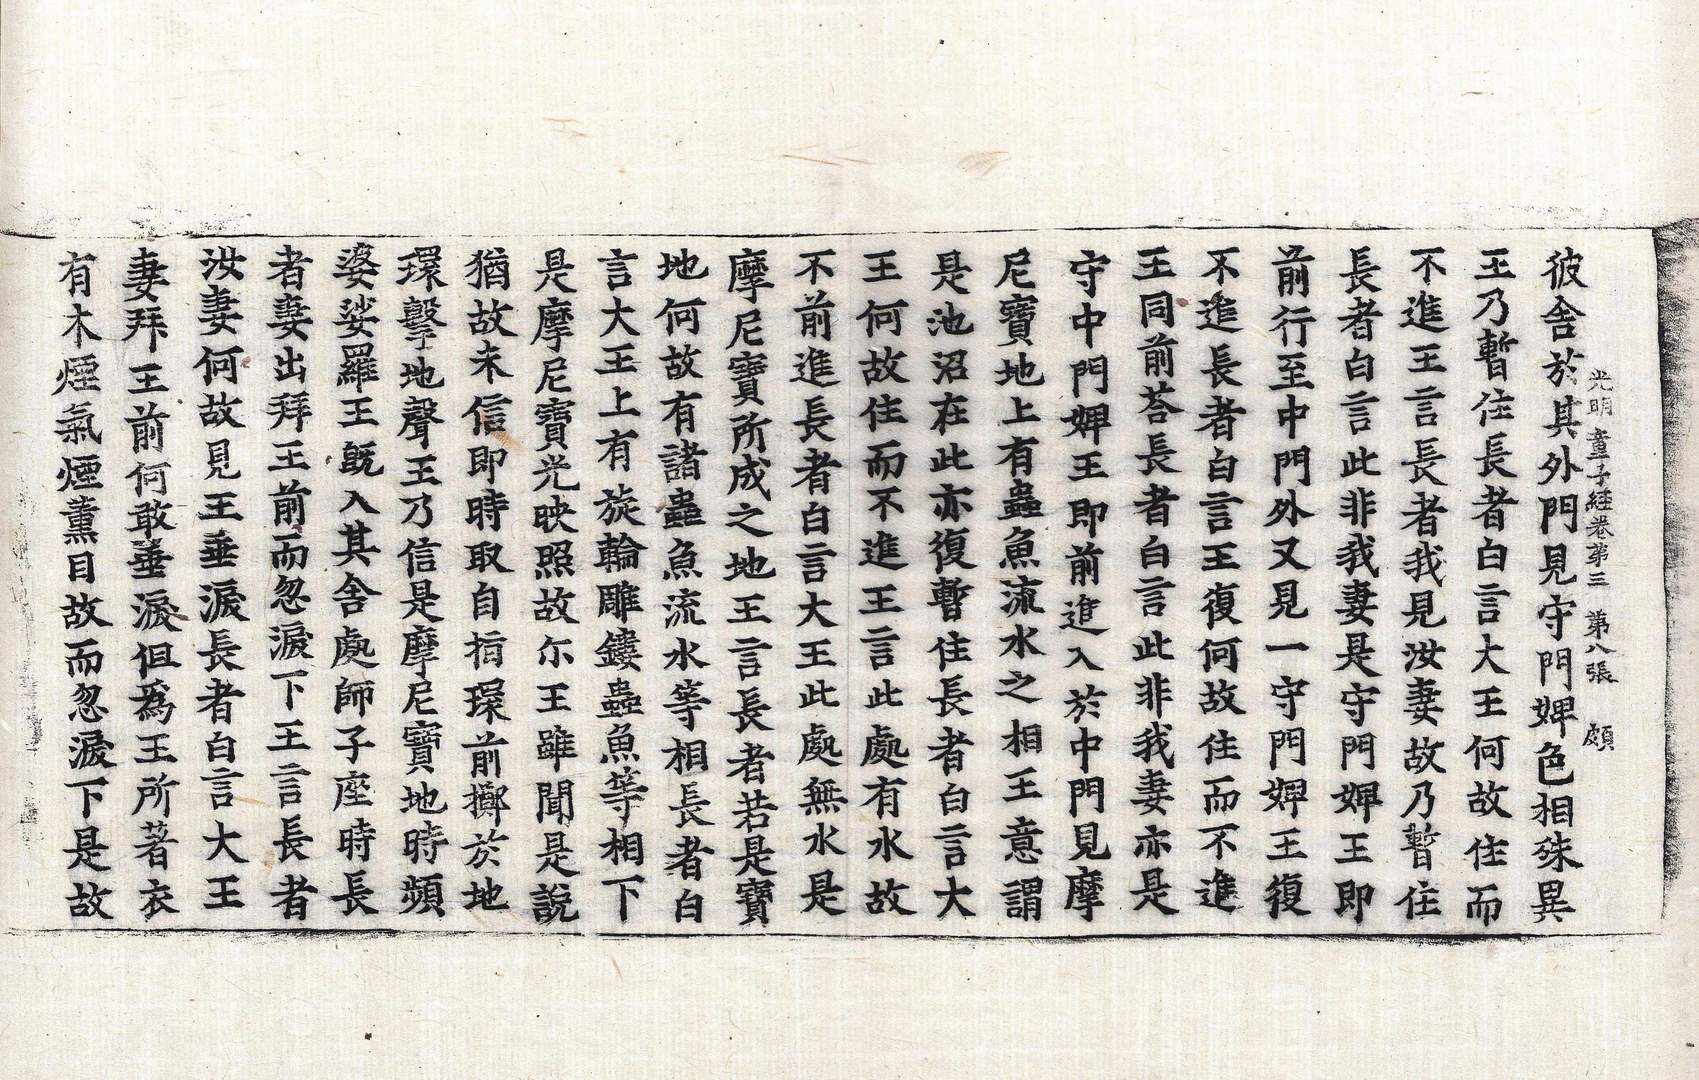 光明童子經卷第三　第八張　頗
彼舍於其外門見守門婢色相殊異
王乃暫住長者白言大王何故住而
不進王言長者我見汝妻故乃暫住
長者白言此非我妻是守門婢王即
前行至中門外又見一守門婢王復
不進長者白言王復何故住而不進
王同前荅長者白言此非我妻亦是
守中門婢王即前進入於中門見摩
尼寶地上有蟲魚流水之相王意謂
是池沼在此亦復暫住長者白言大
王何故住而不進王言此處有水故
不前進長者白言大王此處無水是
摩尼寶所成之地王言長者若是寶
地何故有諸蟲魚流水等相長者白
言大王上有旋輪雕鏤蟲魚等相下
是摩尼寶光映照故尔王雖聞是說
猶故未信即時取自指環前擲於地
環擊地聲王乃信是摩尼寶地時頻
婆娑羅王旣入其舍處師子座時長
者妻出拜王前而忽淚下王言長者
汝妻何故見王垂淚長者白言大王
妻拜王前何敢垂淚但爲王所著衣
有木煙氣煙薰目故而忽淚下是故